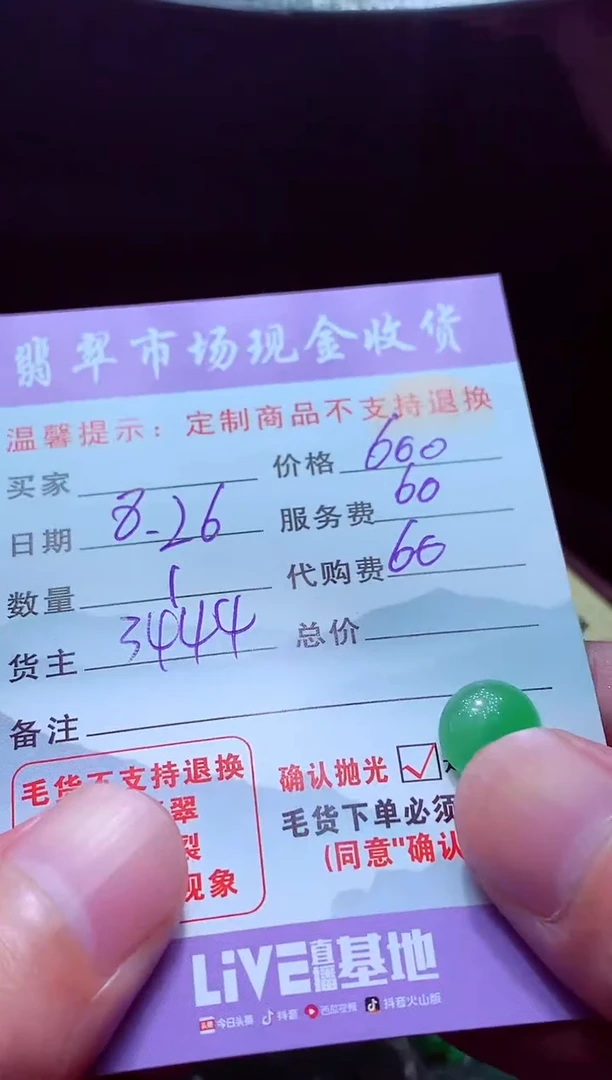 翡翠市场现金收货
温馨提示：定制商品不支持退换
买家 价格 600
日期 8-26 服务费 60
数量 1 代购费 60
货主 3444 总价
备注
毛货不支持退换
翠
裂
现象
确认抛光 ☑
毛货下单必须
(同意"确认
LiVE直播基地
头条 今日头条 抖音 西瓜视频 抖音火山版